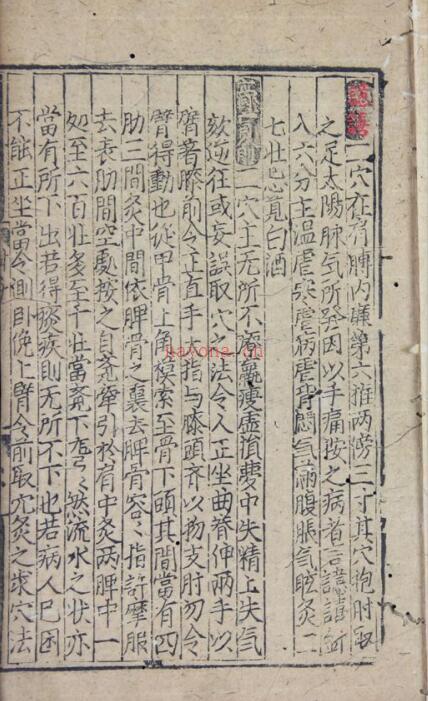 譩譆二穴在肩膊内廉第六椎兩傍三寸其穴抱肘取
之足太陽脉氣所發因以手痛按之病者言譩譆針
入六分主温瘧寒瘧病瘧背悶氣滿腹脹氣眩灸二
七壯忌莧白酒
膏肓俞二穴主无所不療羸瘦虚損夢中失精上失气
欬逆狂或妄誤取穴之法令人正坐曲脊伸兩手以
臂著膝前令正直手大指与膝頭齊以物支肘勿令
臂得動也從甲骨上角摸索至骨下頭其間當有四
肋三間灸中間依胛骨之裏去胛骨容、指許摩服
去表肋間空處按之自覺牽引於肩中灸兩胛中一
処至六百壯多至千壯當覺下、然流水之状亦
當有所下出若得痰疾則无所不下也若病人已困
不能正坐當令側卧俛上臂令前取穴灸之求穴法
hayona.cn